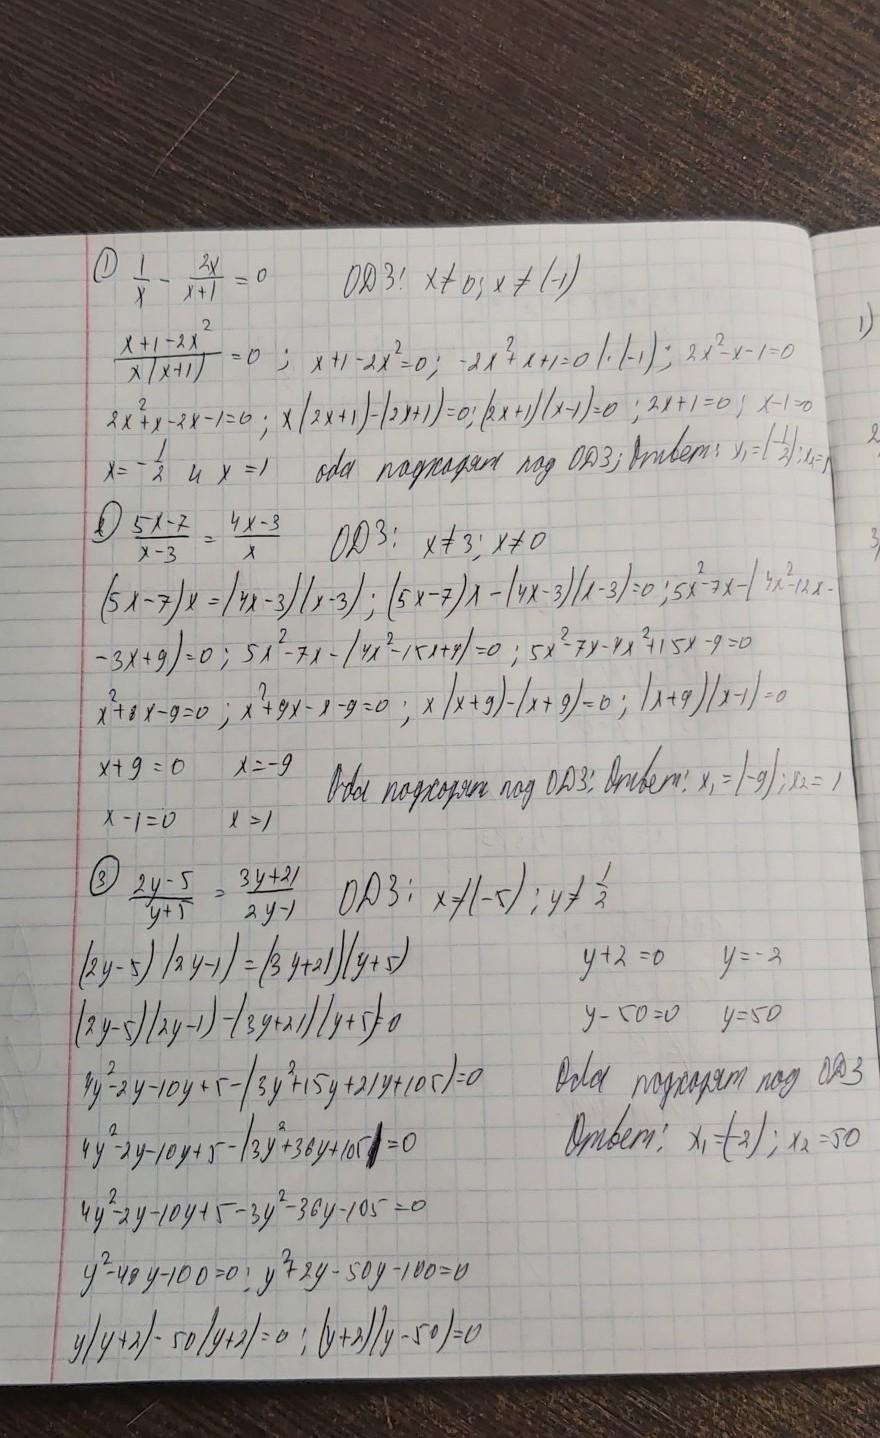 ① 1/x - 2x/(x+1) = 0 ОДЗ: x≠0; x≠(-1)
(x+1-2x²)/(x(x+1)) = 0; x+1-2x²=0; -2x²+x+1=0 |·(-1); 2x²-x-1=0
2x²+x-2x-1=0; x(2x+1)-(2x+1)=0; (2x+1)(x-1)=0; 2x+1=0; x-1=0
x=-1/2 и x=1 оба подходят под ОДЗ; Ответ: x₁=(-1/2); x₂=1
② (5x-7)/(x-3) = (4x-3)/x ОДЗ: x≠3; x≠0
(5x-7)x=(4x-3)(x-3); (5x-7)x-(4x-3)(x-3)=0; 5x²-7x-(4x²-12x-
-3x+9)=0; 5x²-7x-(4x²-15x+9)=0; 5x²-7x-4x²+15x-9=0
x²+8x-9=0; x²+9x-x-9=0; x(x+9)-(x+9)=0; (x+9)(x-1)=0
x+9=0 x=-9
Оба подходят под ОДЗ: Ответ: x₁=(-9); x₂=1
x-1=0 x=1
③ (2y-5)/(y+5) = (3y+21)/(2y-1) ОДЗ: x≠(-5); y≠1/2
(2y-5)(2y-1)=(3y+21)(y+5)
(2y-5)(2y-1)-(3y+21)(y+5)=0
4y²-2y-10y+5-(3y²+15y+21y+105)=0
4y²-2y-10y+5-(3y²+36y+105)=0
4y²-2y-10y+5-3y²-36y-105=0
y²-48y-100=0; y²+2y-50y-100=0
y(y+2)-50(y+2)=0; (y+2)(y-50)=0
y+2=0 y=-2
y-50=0 y=50
Оба подходят под ОДЗ
Ответ: x₁=(-2); x₂=50
1)
2
3